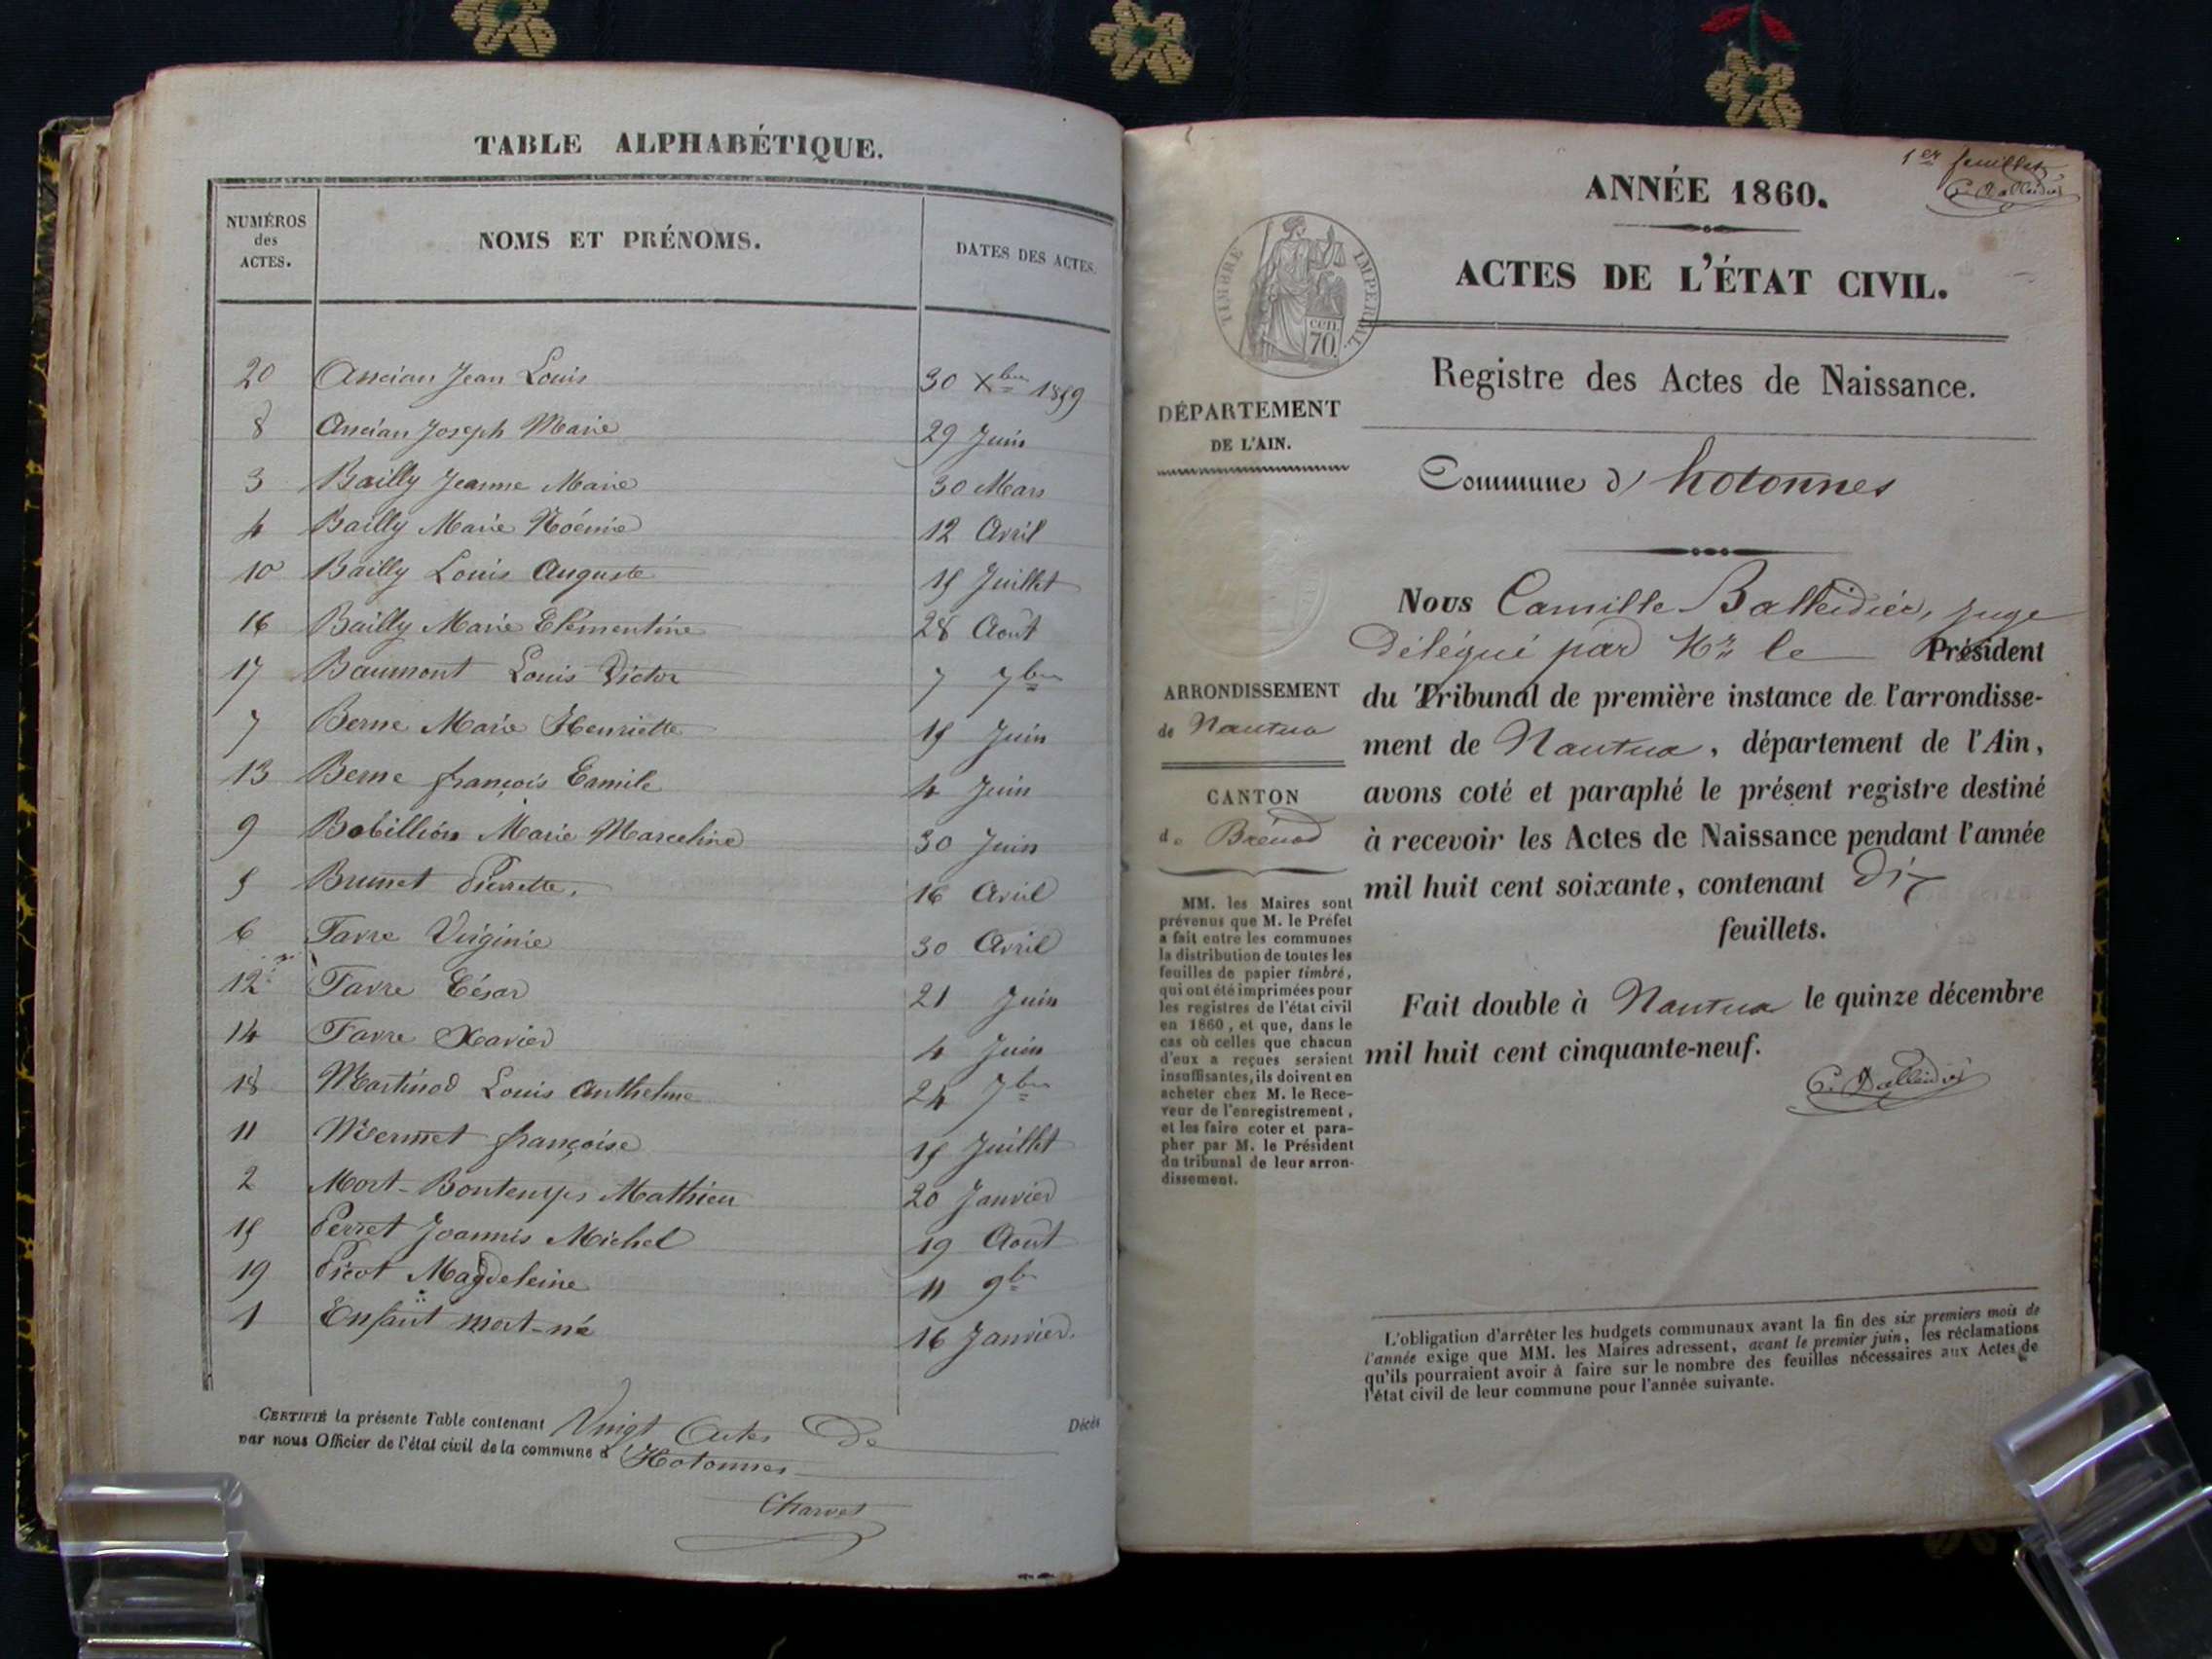 TABLE ALPHABÉTIQUE.
NUMÉROS
des
ACTES.
NOMS ET PRÉNOMS.
DATES DES ACTES.
20 Ancian Jean Louis 30 Xbre 1859
8 Ancian Joseph Marie 29 Juin
3 Bailly Jeanne Marie 30 Mars
4 Bailly Marie Noémie 12 Avril
10 Bailly Louis Auguste 15 Juillet
16 Bailly Marie Clémentine 28 Août
17 Baumont Louis Victor 7 7bre
7 Berne Marie Henriette 15 Juin
13 Berne françois Camile 4 Juin
9 Bobillion Marie Marceline 30 Juin
5 Brunet Pierrette, 16 Avril
6 Favre Virginie 30 Avril
12 Favre César 21 Juin
14 Favre Xavier 4 Juin
18 Martinod Louis Anthelme 24 7bre
11 Mermet françoise 15 Juillet
2 Mort-Bontemps Mathieu 20 Janvier
15 Perret Joannis Michel 19 Août
19 Picot Magdeleine 11 9bre
1 Enfant mort-né 16 Janvier.
CERTIFIÉ la présente Table contenant Vingt Actes De Décès
par nous Officier de l'état civil de la commune d'Hotonnes
Charvet
1er feuillet
C. Balleidier
ANNÉE 1860.
TIMBRE IMPERIAL
cen.
70.
ACTES DE L'ÉTAT CIVIL.
Registre des Actes de Naissance.
DÉPARTEMENT
DE L'AIN.
Commune d'hotonnes
ARRONDISSEMENT
de Nantua
CANTON
de Brénod
MM. les Maires sont
prévenus que M. le Préfet
a fait entre les communes
la distribution de toutes les
feuilles de papier timbré,
qui ont été imprimées pour
les registres de l'état civil
en 1860, et que, dans le
cas où celles que chacun
d'eux a reçues seraient
insuffisantes, ils doivent en
acheter chez M. le Rece-
veur de l'enregistrement,
et les faire coter et para-
pher par M. le Président
du tribunal de leur arron-
dissement.
Nous Camille Balleidier, juge
Délégué par Mr. le Président
du Tribunal de première instance de l'arrondisse-
ment de Nantua, département de l'Ain,
avons coté et paraphé le présent registre destiné
à recevoir les Actes de Naissance pendant l'année
mil huit cent soixante, contenant Dix
feuillets.
Fait double à Nantua le quinze décembre
mil huit cent cinquante-neuf.
C. Balleidier
L'obligation d'arrêter les budgets communaux avant la fin des six premiers mois de
l'année exige que MM. les Maires adressent, avant le premier juin, les réclamations
qu'ils pourraient avoir à faire sur le nombre des feuilles nécessaires aux Actes de
l'état civil de leur commune pour l'année suivante.